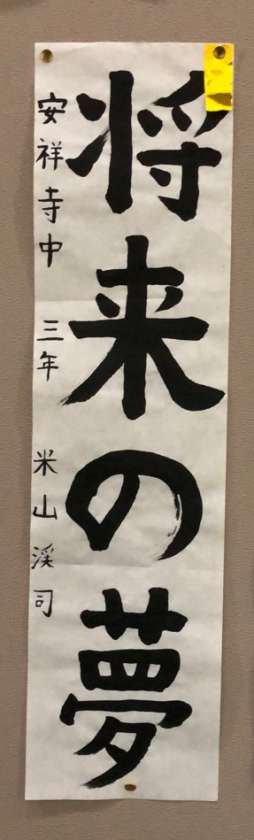 将来の夢
安祥寺中 三年 米山 渓司